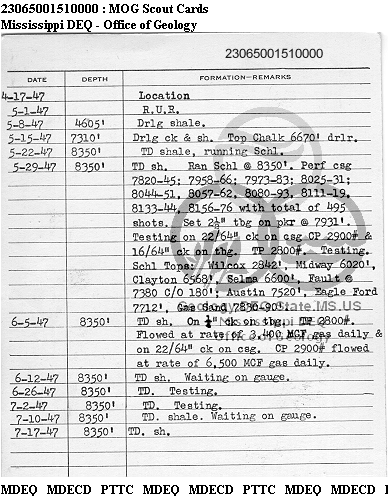 23065001510000 : MOG Scout Cards
Mississippi DEQ - Office of Geology
23065001510000
DATE DEPTH FORMATION—REMARKS
4-17-47 Location
5-1-47 R.U.R.
5-8-47 4605' Drlg shale.
5-15-47 7310' Drlg ck & sh. Top Chalk 6670' drlr.
5-22-47 8350' TD shale, running Schl.
5-29-47 8350' TD sh. Ran Schl @ 8350'. Perf csg
7820-45; 7958-66; 7973-83; 8025-31;
8044-51, 8057-62, 8080-93, 8111-19,
8133-44, 8156-76 with total of 495
shots. Set 2½" tbg on pkr @ 7931'.
Testing on 22/64" ck on csg CP 2900# &
16/64" ck on tbg. TP 2800#. Testing.
Schl Tops: Wilcox 2842', Midway 6020',
Clayton 6568', Selma 6600', Fault @
7380 C/O 180'; Austin 7520', Eagle Ford
7712', Gas Sand 7836-90'.
6-5-47 8350' TD sh. On ¼" ck on tbg. TP 2800#.
Flowed at rate of 3,400 MCF gas daily &
on 22/64" ck on csg. CP 2900# flowed
at rate of 6,500 MCF gas daily.
6-12-47 8350' TD sh. Waiting on gauge.
6-26-47 8350' TD. Testing.
7-2-47 8350' TD. Testing.
7-10-47 8350' TD. shale. Waiting on gauge.
7-17-47 8350' TD. sh.
MDEQ MDECD PTTC MDEQ MDECD PTTC MDEQ MDECD